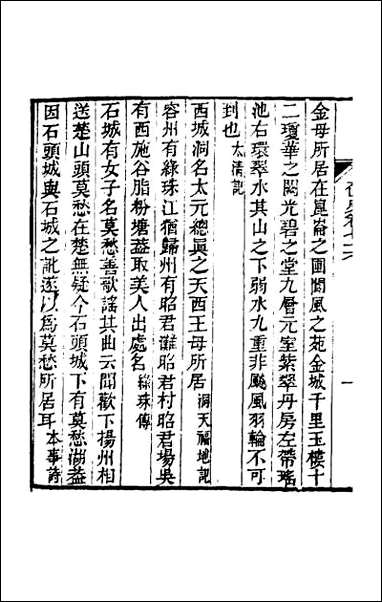 金母所居在崑崙之圃閬風之苑金城千里玉樓十
二瓊華之闕光碧之堂九層元室紫翠丹房左帶瑤
池右環翠水其山之下弱水九重非飈風羽輪不可
到也太清記
西城洞名太元總眞之天西王母所居洞天福地記
容州有綠珠江猶歸州有昭君灘昭君村昭君場吳
有西施谷脂粉塘葢取美人出處名綠珠傳
石城有女子名莫愁善歌謠其曲云聞歡下揚州相
送楚山頭莫愁在楚無疑今石頭城下有莫愁湖葢
因石頭城與石城之訛遂以爲莫愁所居耳本事詩